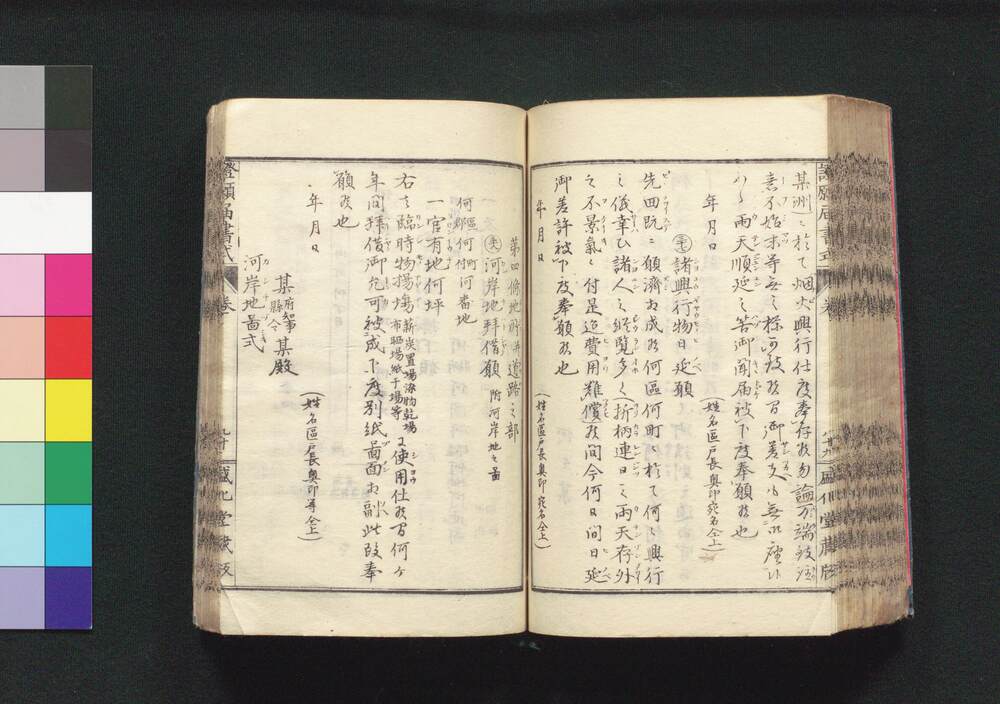 某洲ニ於て烟火興行仕度奉存候勿論万端諸注
意不始末等無之様可致候間御差支も無御座候
ハヽ雨天順延之筈御聞届被下度奉願候也
年月日
(姓名區戸長奥印宛名仝上)
諸興行物日延願
先田既ニ願濟相成候何區何町ニ於て何々興行
之儀幸ひ諸人之縦覧多く折柄連日之雨天存外
之不景氣ニ付足迠費用難償候間今何日間日延
御差許被下度奉願候也
年月日
(姓名區戸長奥印宛名仝上)
第四
地所并道路之部
河岸地拝借願 附河岸地之圖
何區何町
何郡何村何番地
一官有地何坪
右之臨時物揚場薪炭置場染物乾場
布晒場紙干場等ニ使用仕候間何ヶ
年間拝借御免可被成下度別紙圖面相副此段奉
願候也
年月日
(姓名區戸長奥印等仝上)
某府知事
縣令某殿
河岸地畧式
證願届書式
卷
九十
盛化堂蔵版